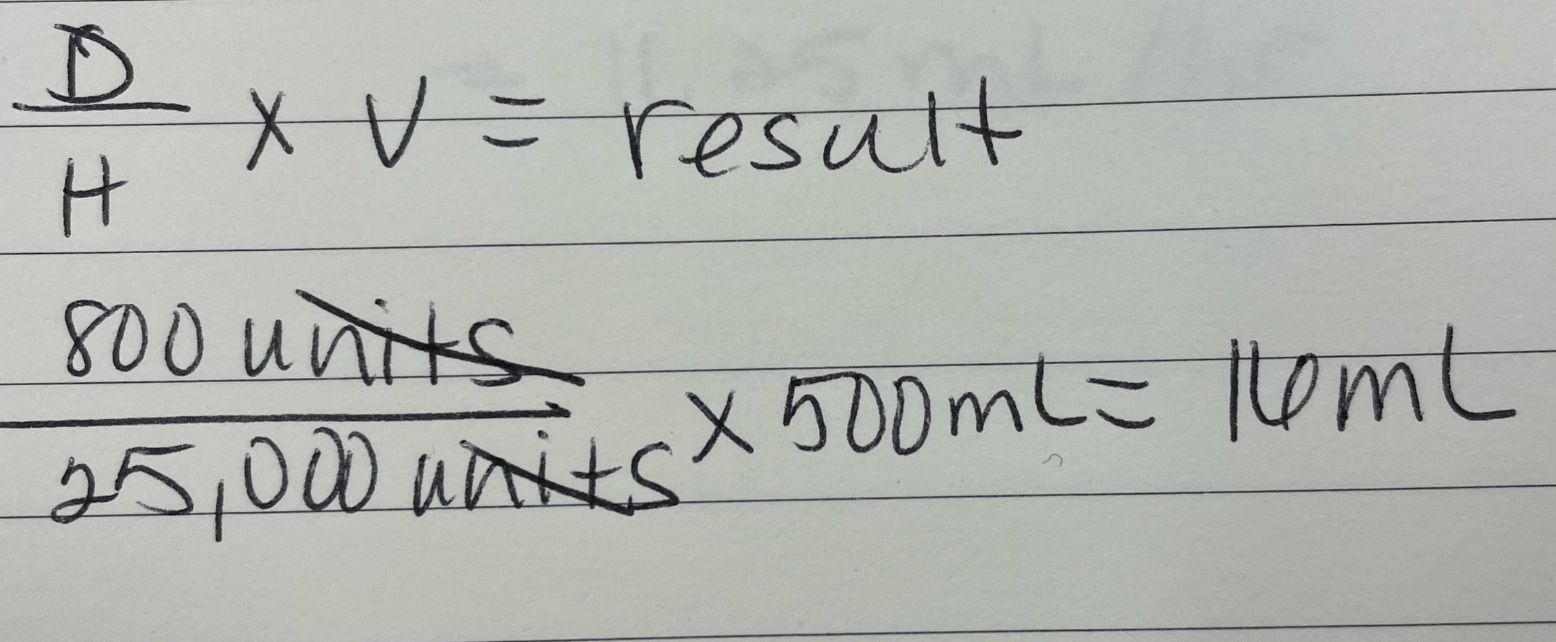 D/H x V = result
800 units/25,000 units x 500mL = 16mL